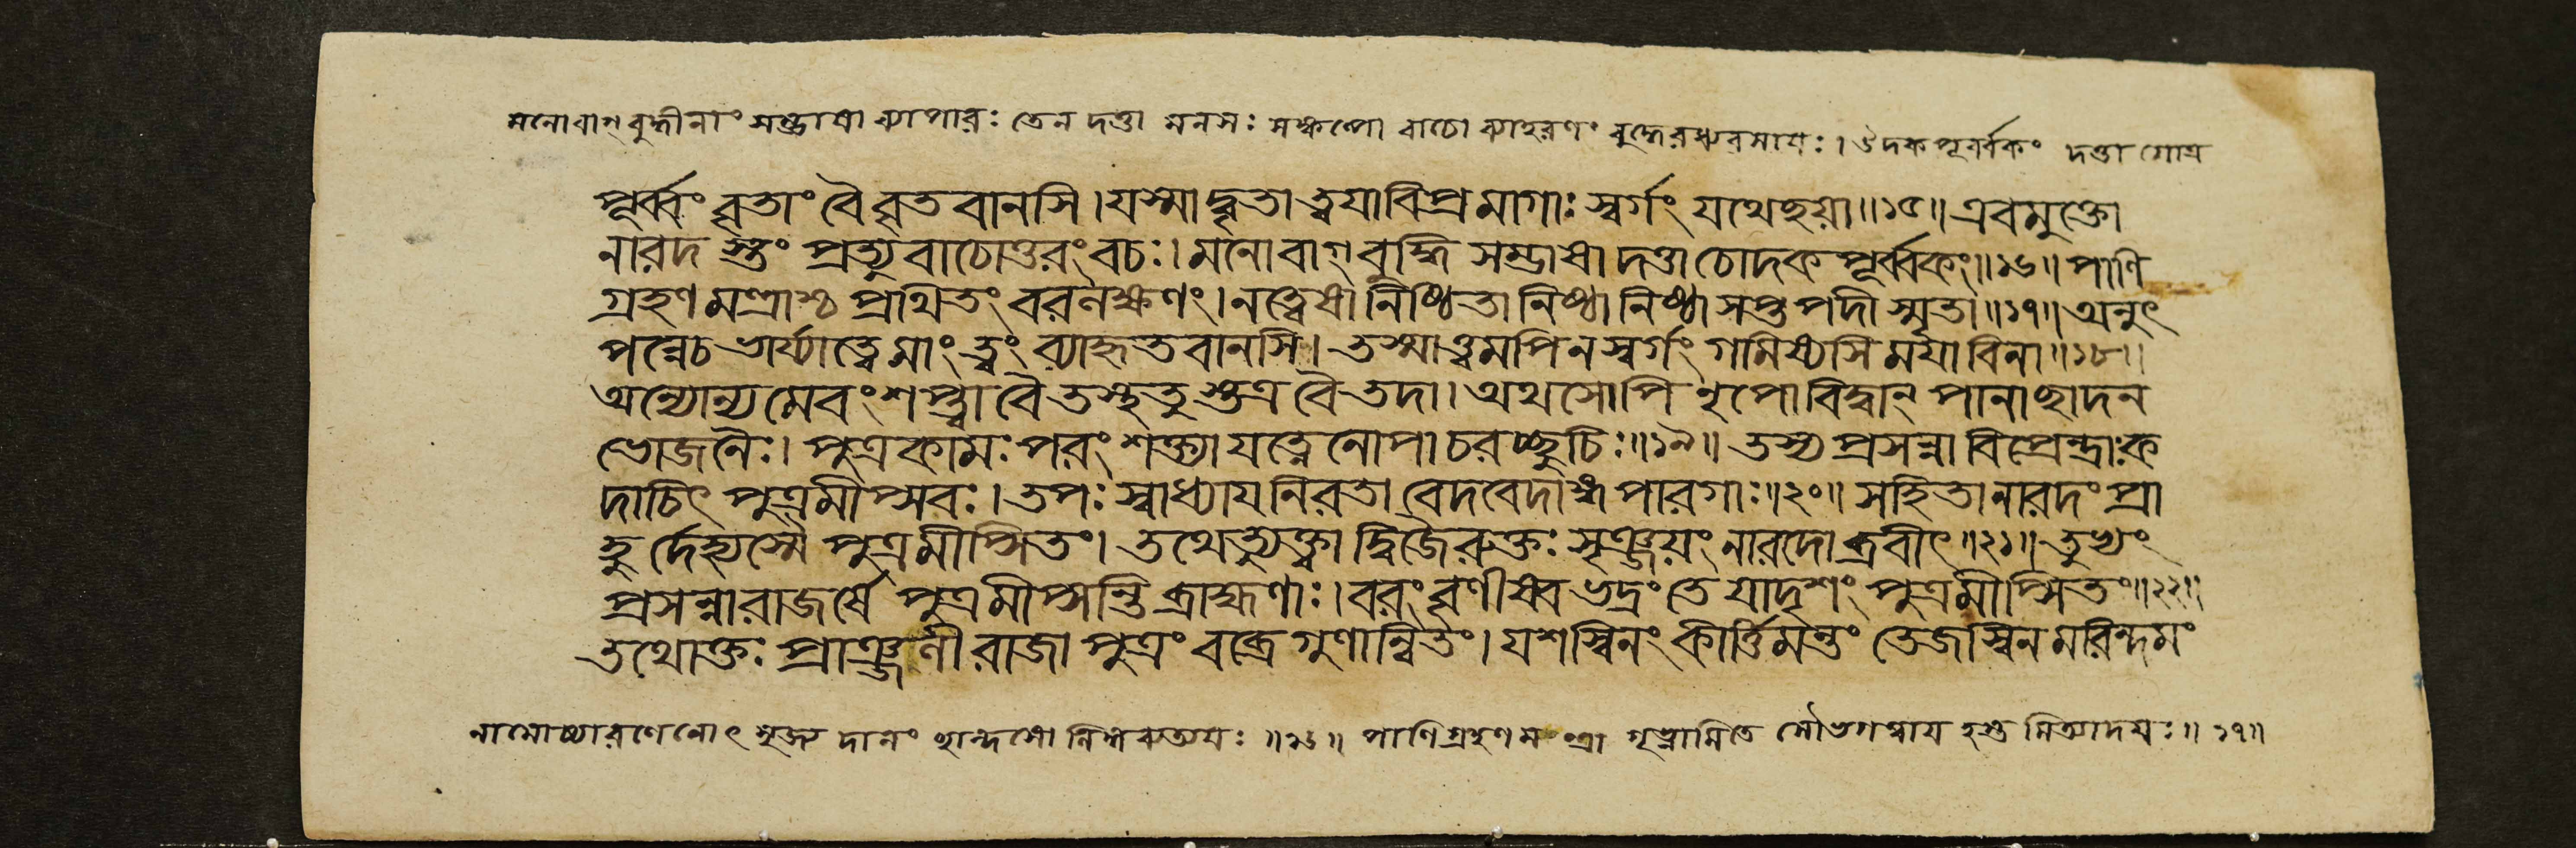 মনোবাগ্বুদ্ধীনাং সম্ভাষা ব্যাপারঃ তেন দত্তা মনসঃ সঙ্কল্পো বাচো ব্যাহরণং বুদ্ধেরধ্যবসায়ঃ। উদকপূর্ব্বকং দত্তা গোত্র
পূর্ব্বং বৃতাং বৈ বৃতবানসি। যস্মাদ্বৃতা ত্বয়া বিপ্র মাগাঃ স্বর্গং যথেছয়া॥১৫॥ এবমুক্তো
নারদ স্তং প্রত্যুবাচোত্তরং বচঃ। মনোবাগ্বুদ্ধি সম্ভাষা দত্তা চোদক পূর্ব্বকং॥১৬॥ পাণি
গ্রহণ মন্ত্রাশ্চ প্রথিতং বরলক্ষণং। নত্বেষা নিশ্চিতা নিষ্ঠা নিষ্ঠা সপ্তপদী স্মৃতা॥১৭॥ অনুৎ
পন্নেচ ভার্য্যাত্বে মাং ত্বং ব্যাহৃতবানসি। তস্মাত্ত্বমপি ন স্বর্গং গমিষ্যসি ময়া বিনা॥১৮॥
অন্যোন্যমেবং শপ্ত্বা বৈ তস্থতু স্তত্র বৈ তদা। অথ সোপি নৃপো বিদ্বান্ পানাছাদন
ভোজনৈঃ। পুত্রকামঃ পরং শক্ত্যা যত্নেনোপাচরচ্ছুচিঃ॥১৯॥ তস্য প্রসন্না বিপ্রেন্দ্রাঃ ক
দাচিৎ পুত্রমীপ্সবঃ। তপঃ স্বাধ্যায়নিরতা বেদবেদাঙ্গ পারগাঃ॥২০॥ সহিতা নারদং প্রা
হু র্দেহ্যস্মৈ পুত্রমীপ্সিতং। তথেত্যুক্ত্বা দ্বিজৈরুক্তঃ সৃঞ্জয়ং নারদোব্রবীৎ॥২১॥ তুভ্যং
প্রসন্না রাজর্ষে পুত্রমীপ্সন্তি ব্রাহ্মণাঃ। বরং বৃণীষ্ব ভদ্রং তে যাদৃশং পুত্রমীপ্সিতং॥২২॥
তথোক্তঃ প্রাঞ্জলী রাজা পুত্রং বব্রে গুণান্বিতং। যশস্বিনং কীর্ত্তিমন্তং তেজস্বিনমরিন্দমং
নামোচ্চারণেনোৎসৃজ্য দানং ॥১৬॥ পাণিগ্রহণমন্ত্রা গৃভ্ণামি তে সৌভগত্বায় হস্ত মিত্যাদয়ঃ॥১৭॥